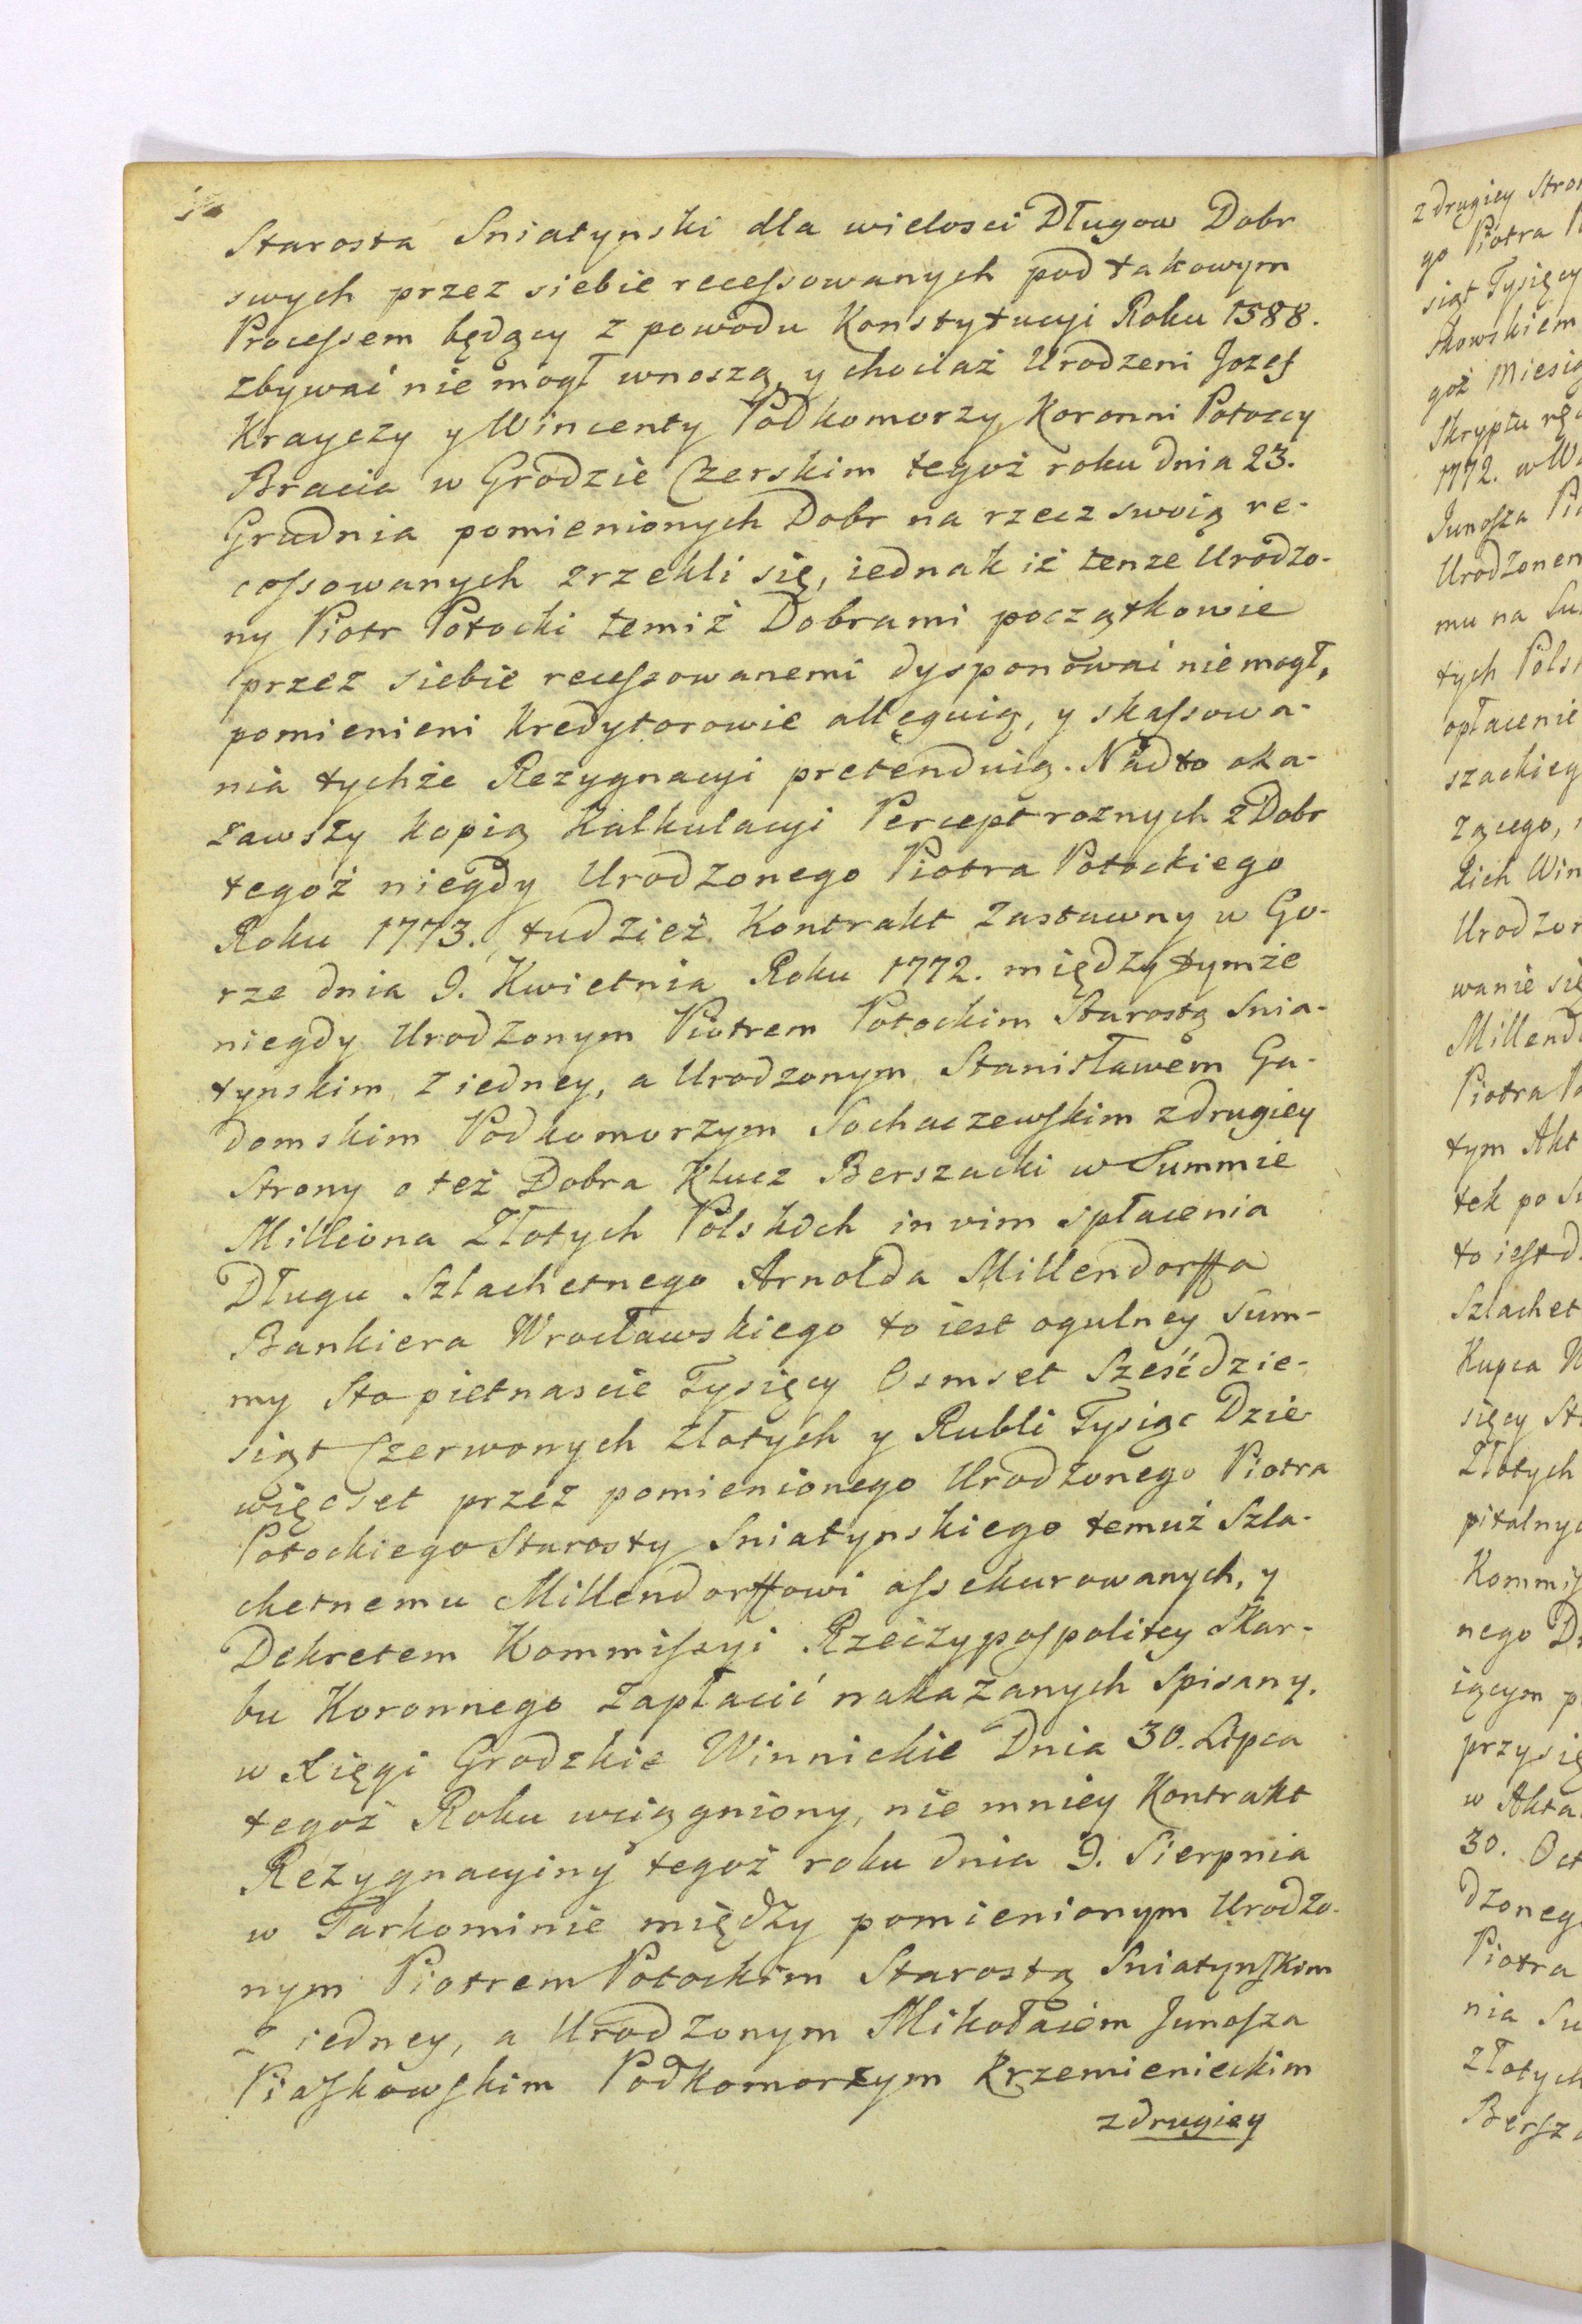 Starosta Sniatynski dla wielosci Długow Dobr
swych przez siebie recessowanych pod takowym
Processem będący z powodu Konstytucyi Roku 1588.
zbywać nie mogł wnoszą, y chociaż Urodzeni Jozef
Krayczy y Wincenty Podkomorzy Koronni Potoccy
Bracia w Grodzie Czerskim tegoż roku dnia 23.
Grudnia pomienionych Dobr na rzecz swoią re-
cessowanych zrzekli się, iednak iż tenze Urodzo-
ny Piotr Potocki temiż Dobrami początkowie
przez siebie recessowanemi dysponować nie mogł,
pomienieni Kredytorowie alleguią, y skassowa-
nia tychże Rezygnacyi pretenduią. Nadto oka-
zawszy kopią Kalkulacyi Percept roznych z Dobr
tegoż niegdy Urodzonego Piotra Potockiego
Roku 1773., tudzież Kontrakt Zastawny w Go-
rze dnia 9. Kwietnia Roku 1772. między tymże
niegdy Urodzonym Piotrem Potockim Starostą Snia-
tynskim z iedney, a Urodzonym Stanisławem Ga-
domskim Podkomorzym Sochaczewskim z drugiey
Strony o też Dobra Klucz Berszacki w Summie
Milliona Złotych Polskich in vim spłacenia
Długu Szlachetnego Arnolda Millendorffa
Bankiera Wrocławskiego to iest ogulney Sum-
my Sto pietnascie Tysięcy Osmset Sześćdzie-
siąt Czerwonych Złotych y Rubli Tysiąc Dzie
więcset przez pomienionego Urodzonego Piotra
Potockiego Starosty Sniatynskiego temuż Szla-
chetnemu Millendorffowi assekurowanych, y
Dekretem Kommissyi Rzeczypospolitey Skar-
bu Koronnego zapłacić nakazanych spisany.
w Xięgi Grodzkie Winnickie Dnia 30. Lipca
tegoż Roku wciągniony, nie mniey Kontrakt
Rezygnacyiny tegoż roku dnia 9. Sierpnia
w Tarkominie między pomienionym Urodzo-
nym Piotrem Potockim Starostą Sniatynskim
z iedney, a Urodzonym Mikołaiem Junosza
Piaskowskim Podkomorzym Krzemienieckim
z drugiey
z drugiey Stro
go Piotra
siąt Tysięcy
skowskiem
goż Miesią
Skryptu ręc
1772. w W
Junosza Pi
Urodzonem
mu na Su
tych Pols
opłacenie
szackieg
zącego,
kich Win
Urodzon
wanie się
Millend
Piotra Po
tym Akt
tek po S
to iest d
Szlachet
Kupca W
sięcy St
Złotych
pitalnyc
Kommis
nego D
iącym p
przysię
w Akta
30. Oct
dzoneg
Piotra
nia Su
złotych
Bersz